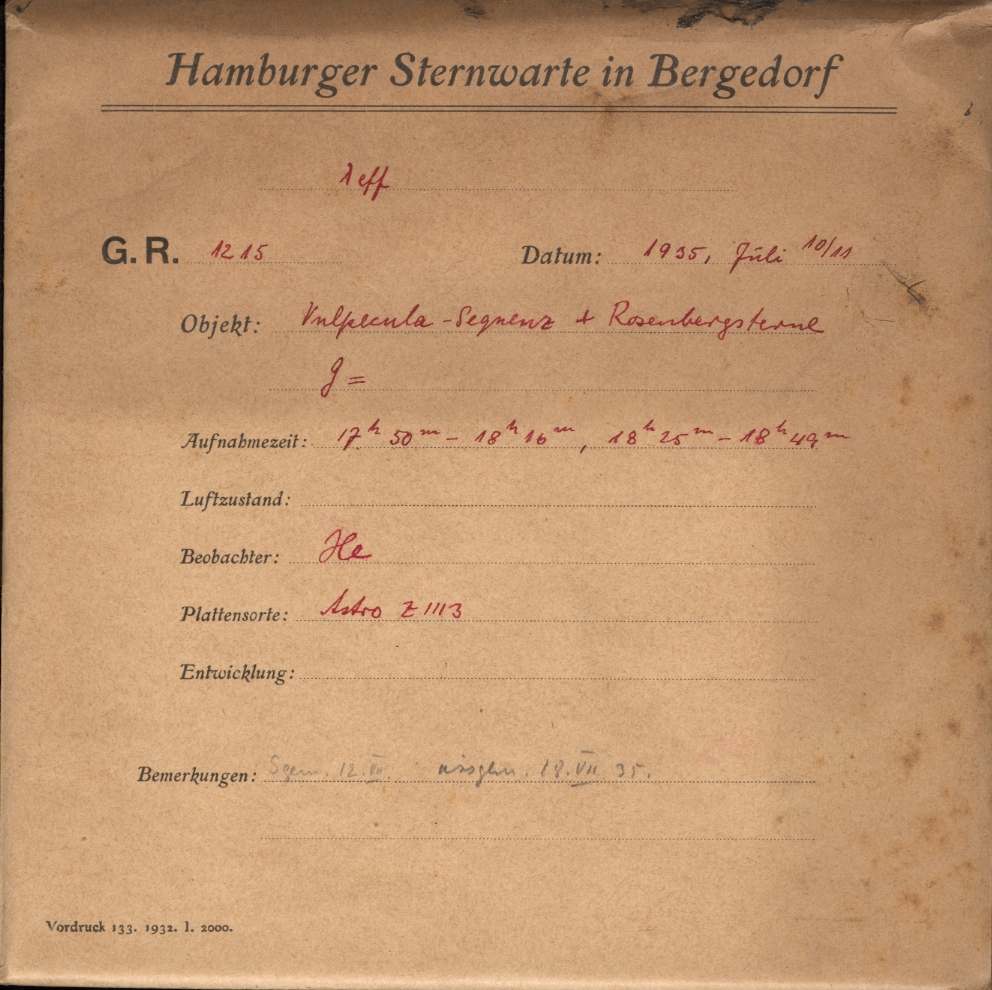 Hamburger Sternwarte in Bergedorf
λ eff
G. R. 1215 Datum: 1935, Juli 10/11
Objekt: Vulpecula-Sequenz + Rosenbergsterne
g =
Aufnahmezeit: 17ʰ 50ᵐ – 18ʰ 16ᵐ, 18ʰ 25ᵐ – 18ʰ 49ᵐ
Luftzustand:
Beobachter: He
Plattensorte: Astro Z 1113
Entwicklung:
Bemerkungen: 12. VII 18. VII 35.
Vordruck 133. 1932. I. 2000.